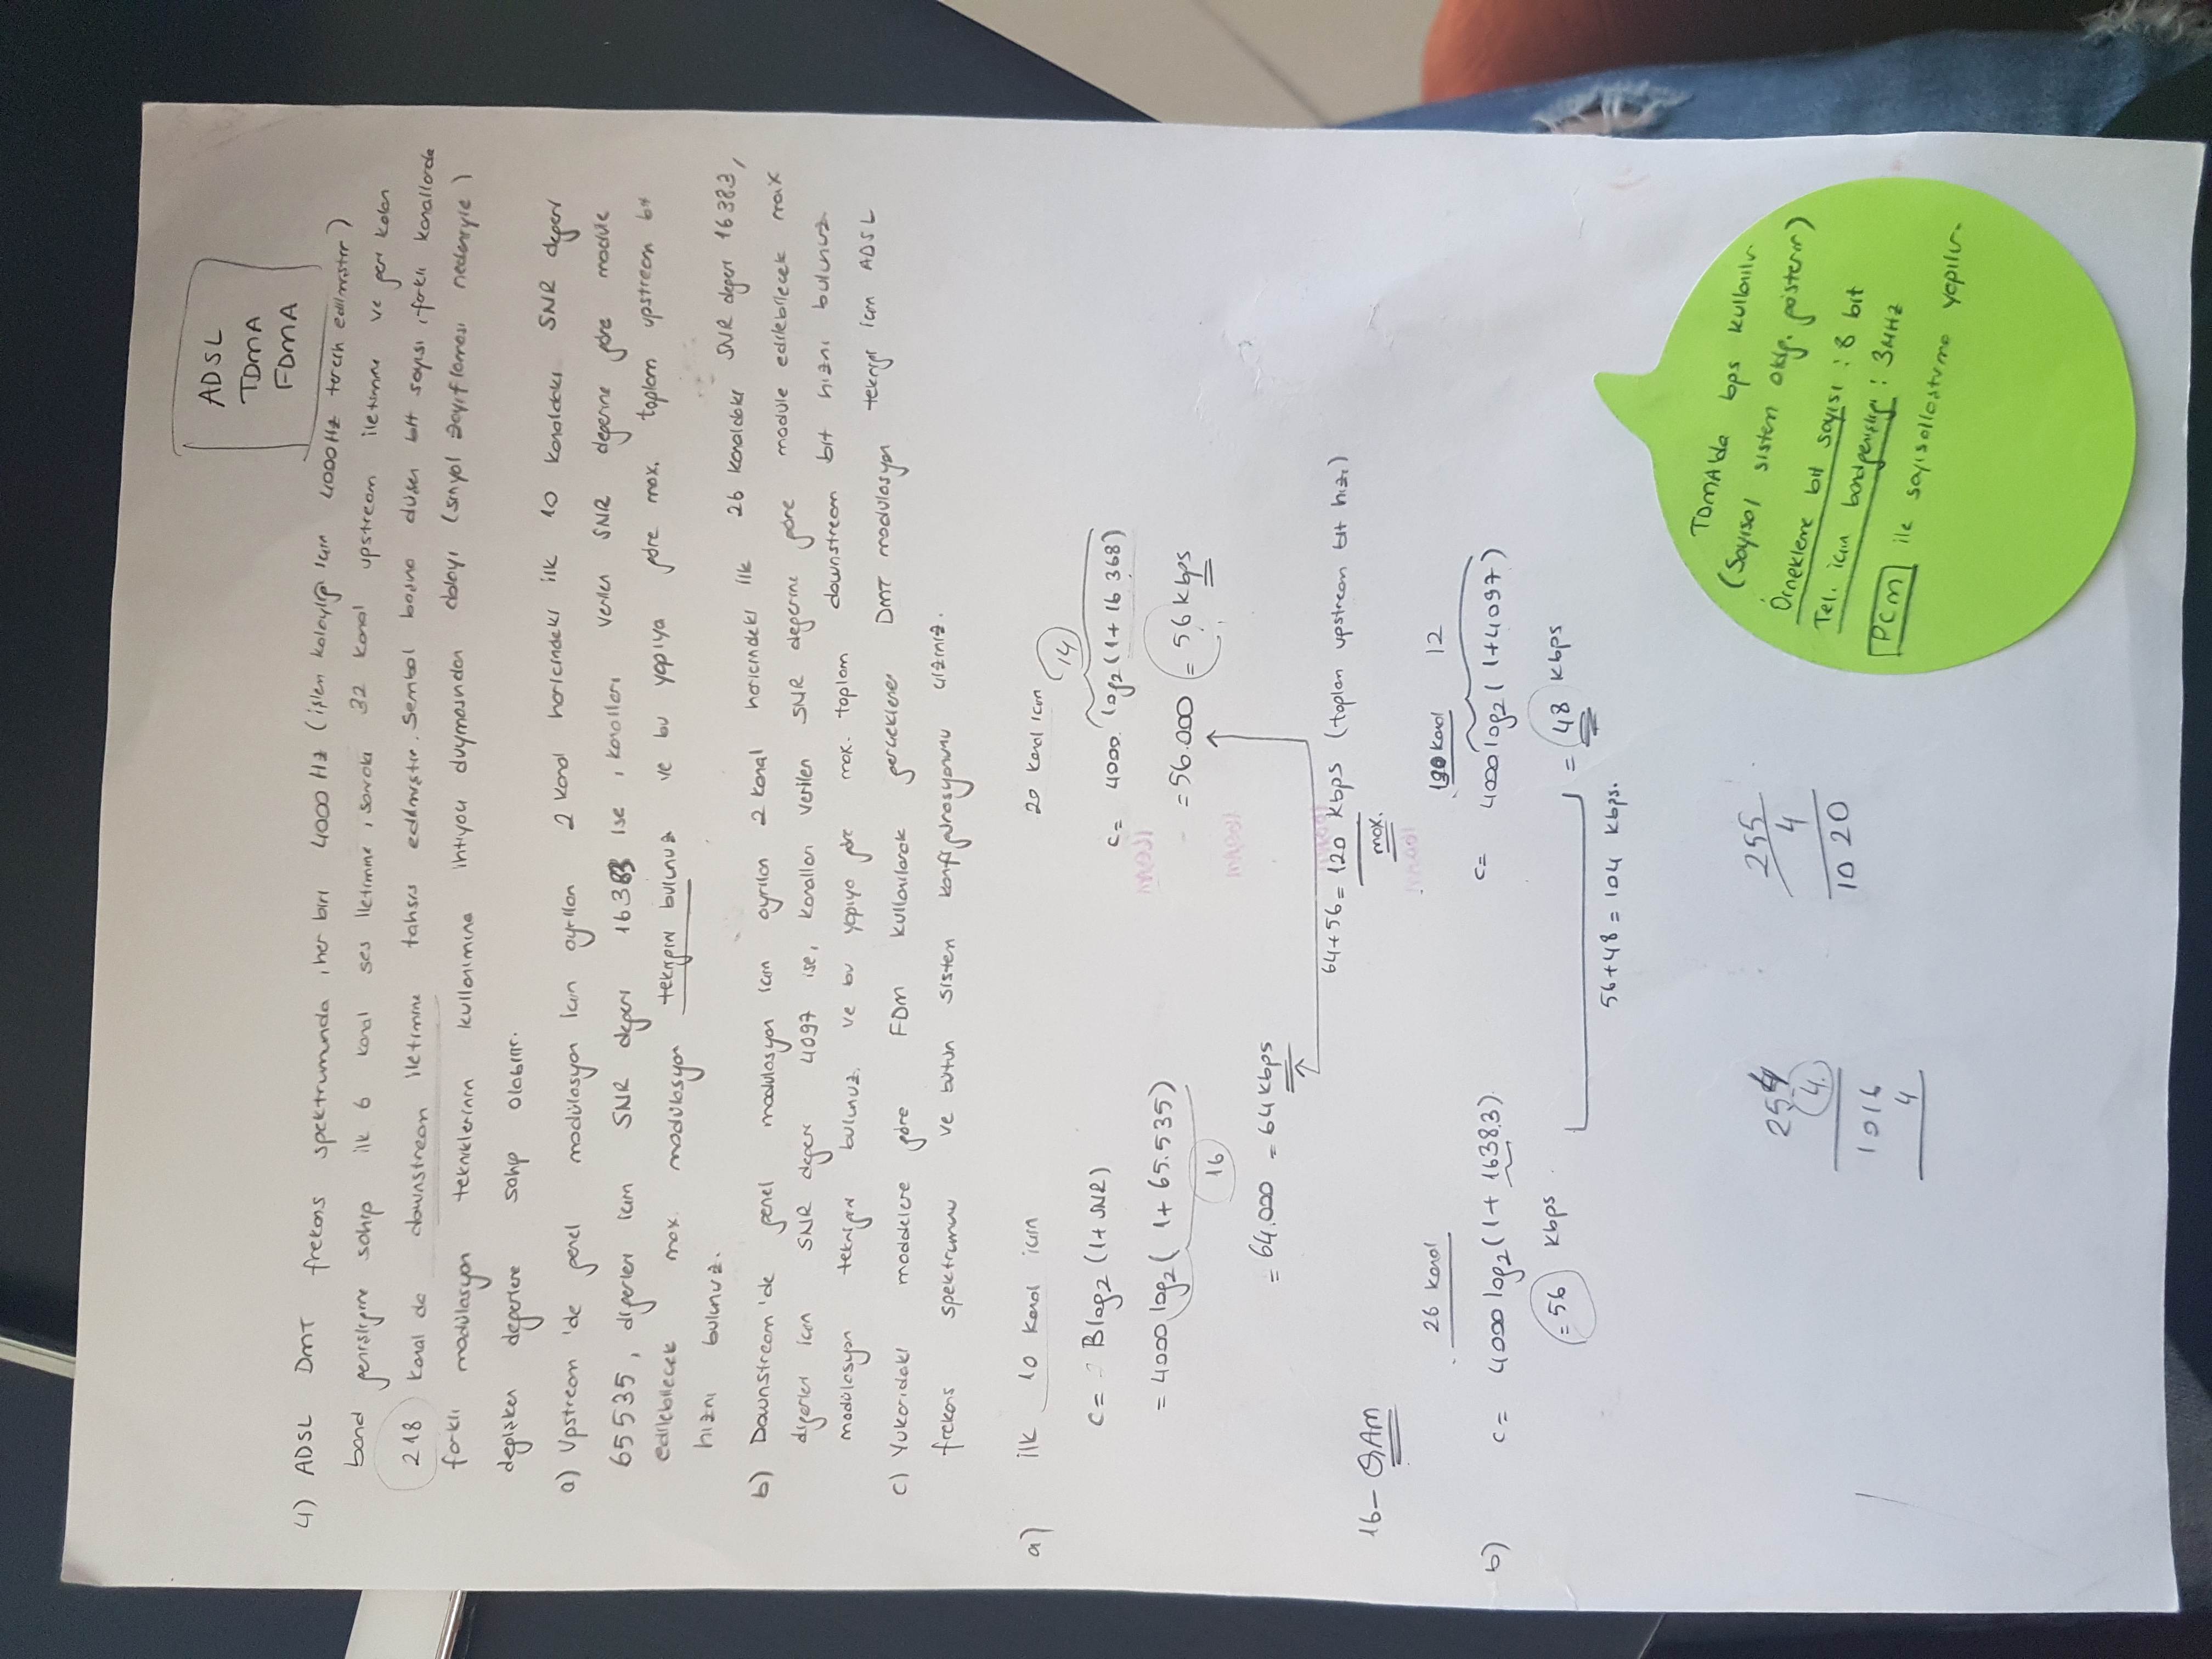 ADSL
TDMA
FDMA
4) ADSL DMT frekans spektrumunda, her biri 4000 Hz (işlem kolaylığı için 4000Hz tercih edilmiştir)
band genişliğine sahip ilk 6 kanal ses iletimine, sonraki 32 kanal upstream iletimine ve geri kalan
218 kanal da downstream iletimine tahsis edilmiştir. Sembol başına düşen bit sayısı, farklı kanallarda
farklı modülasyon tekniklerinin kullanımına ihtiyaç duymasından dolayı (sinyal zayıflaması nedeniyle)
değişken değerlere sahip olabilir.
a) Upstream'de genel modülasyon için ayrılan 2 kanal haricindeki ilk 10 kanaldaki SNR değeri
65535, diğerleri için SNR değeri 16383 ise, kanalları verilen SNR değerine göre modüle
edilebilecek max. modülasyon tekniğini bulunuz ve bu yapıya göre max. toplam upstream bit
hızını bulunuz.
b) Downstream'de genel modülasyon için ayrılan 2 kanal haricindeki ilk 26 kanaldaki SNR değeri 16383,
diğerleri için SNR değeri 4097 ise, kanalları verilen SNR değerine göre modüle edilebilecek max
modülasyon tekniğini bulunuz, ve bu yapıya göre max. toplam downstream bit hızını bulunuz
c) Yukarıdaki maddelere göre FDM kullanılarak gerçeklenen DMT modülasyon tekniği için ADSL
frekans spektrumunu ve bütün sistem konfigürasyonunu çiziniz.
a) ilk 10 kanal için
C= Blog2 (1+ SNR)
= 4000 log2 ( 1+ 65.535)
16
= 64.000 = 64 kbps
20 kanal için
14
C= 4000. log2 (1+ 16 368)
= 56.000 = 56 kbps
64+56 = 120 kbps (toplam upstream bit hızı)
max.
16- QAM
26 kanal
b) C= 4000 log2 (1+ 16383)
= 56 kbps
190 kanal 12
C= 4000 log2 ( 1+4097)
= 48 kbps
56+48 = 104 kbps.
254
4.
1016
4
255
4
1020
TDMA'da bps kullanılır
(Sayısal sistem oldğ. gösterir)
Örnekleme bit sayısı : 8 bit
Tel. için bandgenişliği : 3MHZ
PCM ile sayısallaştırma yapılır.